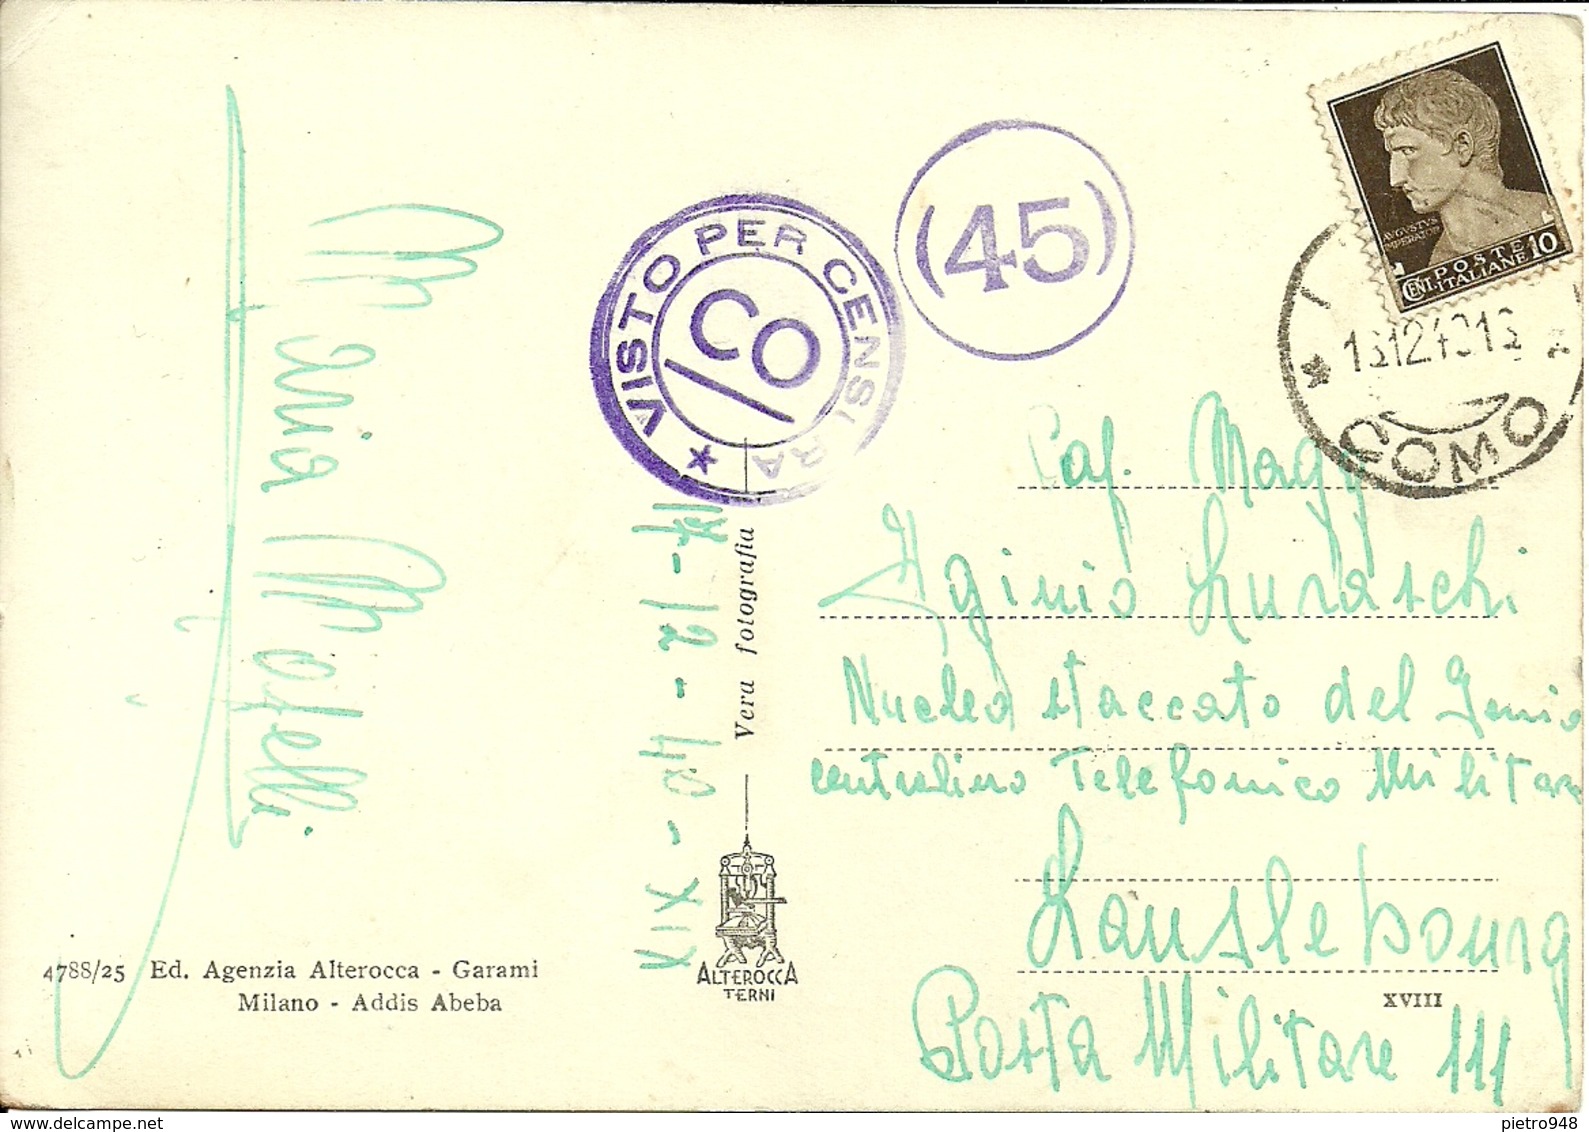 AVGVSTVS
IMPERATOR
POSTE
ITALIANE
CENT. 10
COMO
VISTO PER CENSURA
CO
(45)
Cap. Magg
Iginio Luraschi
Nucleo staccato del Genio
centralino Telefonico Militare
Lanslebourg
Posta Militare 111
17-12-40-XIX
Maria Motelli
Vera fotografia
ALTEROCCA
TERNI
4788/25 Ed. Agenzia Alterocca - Garami
Milano - Addis Abeba
XVIII
pietro948